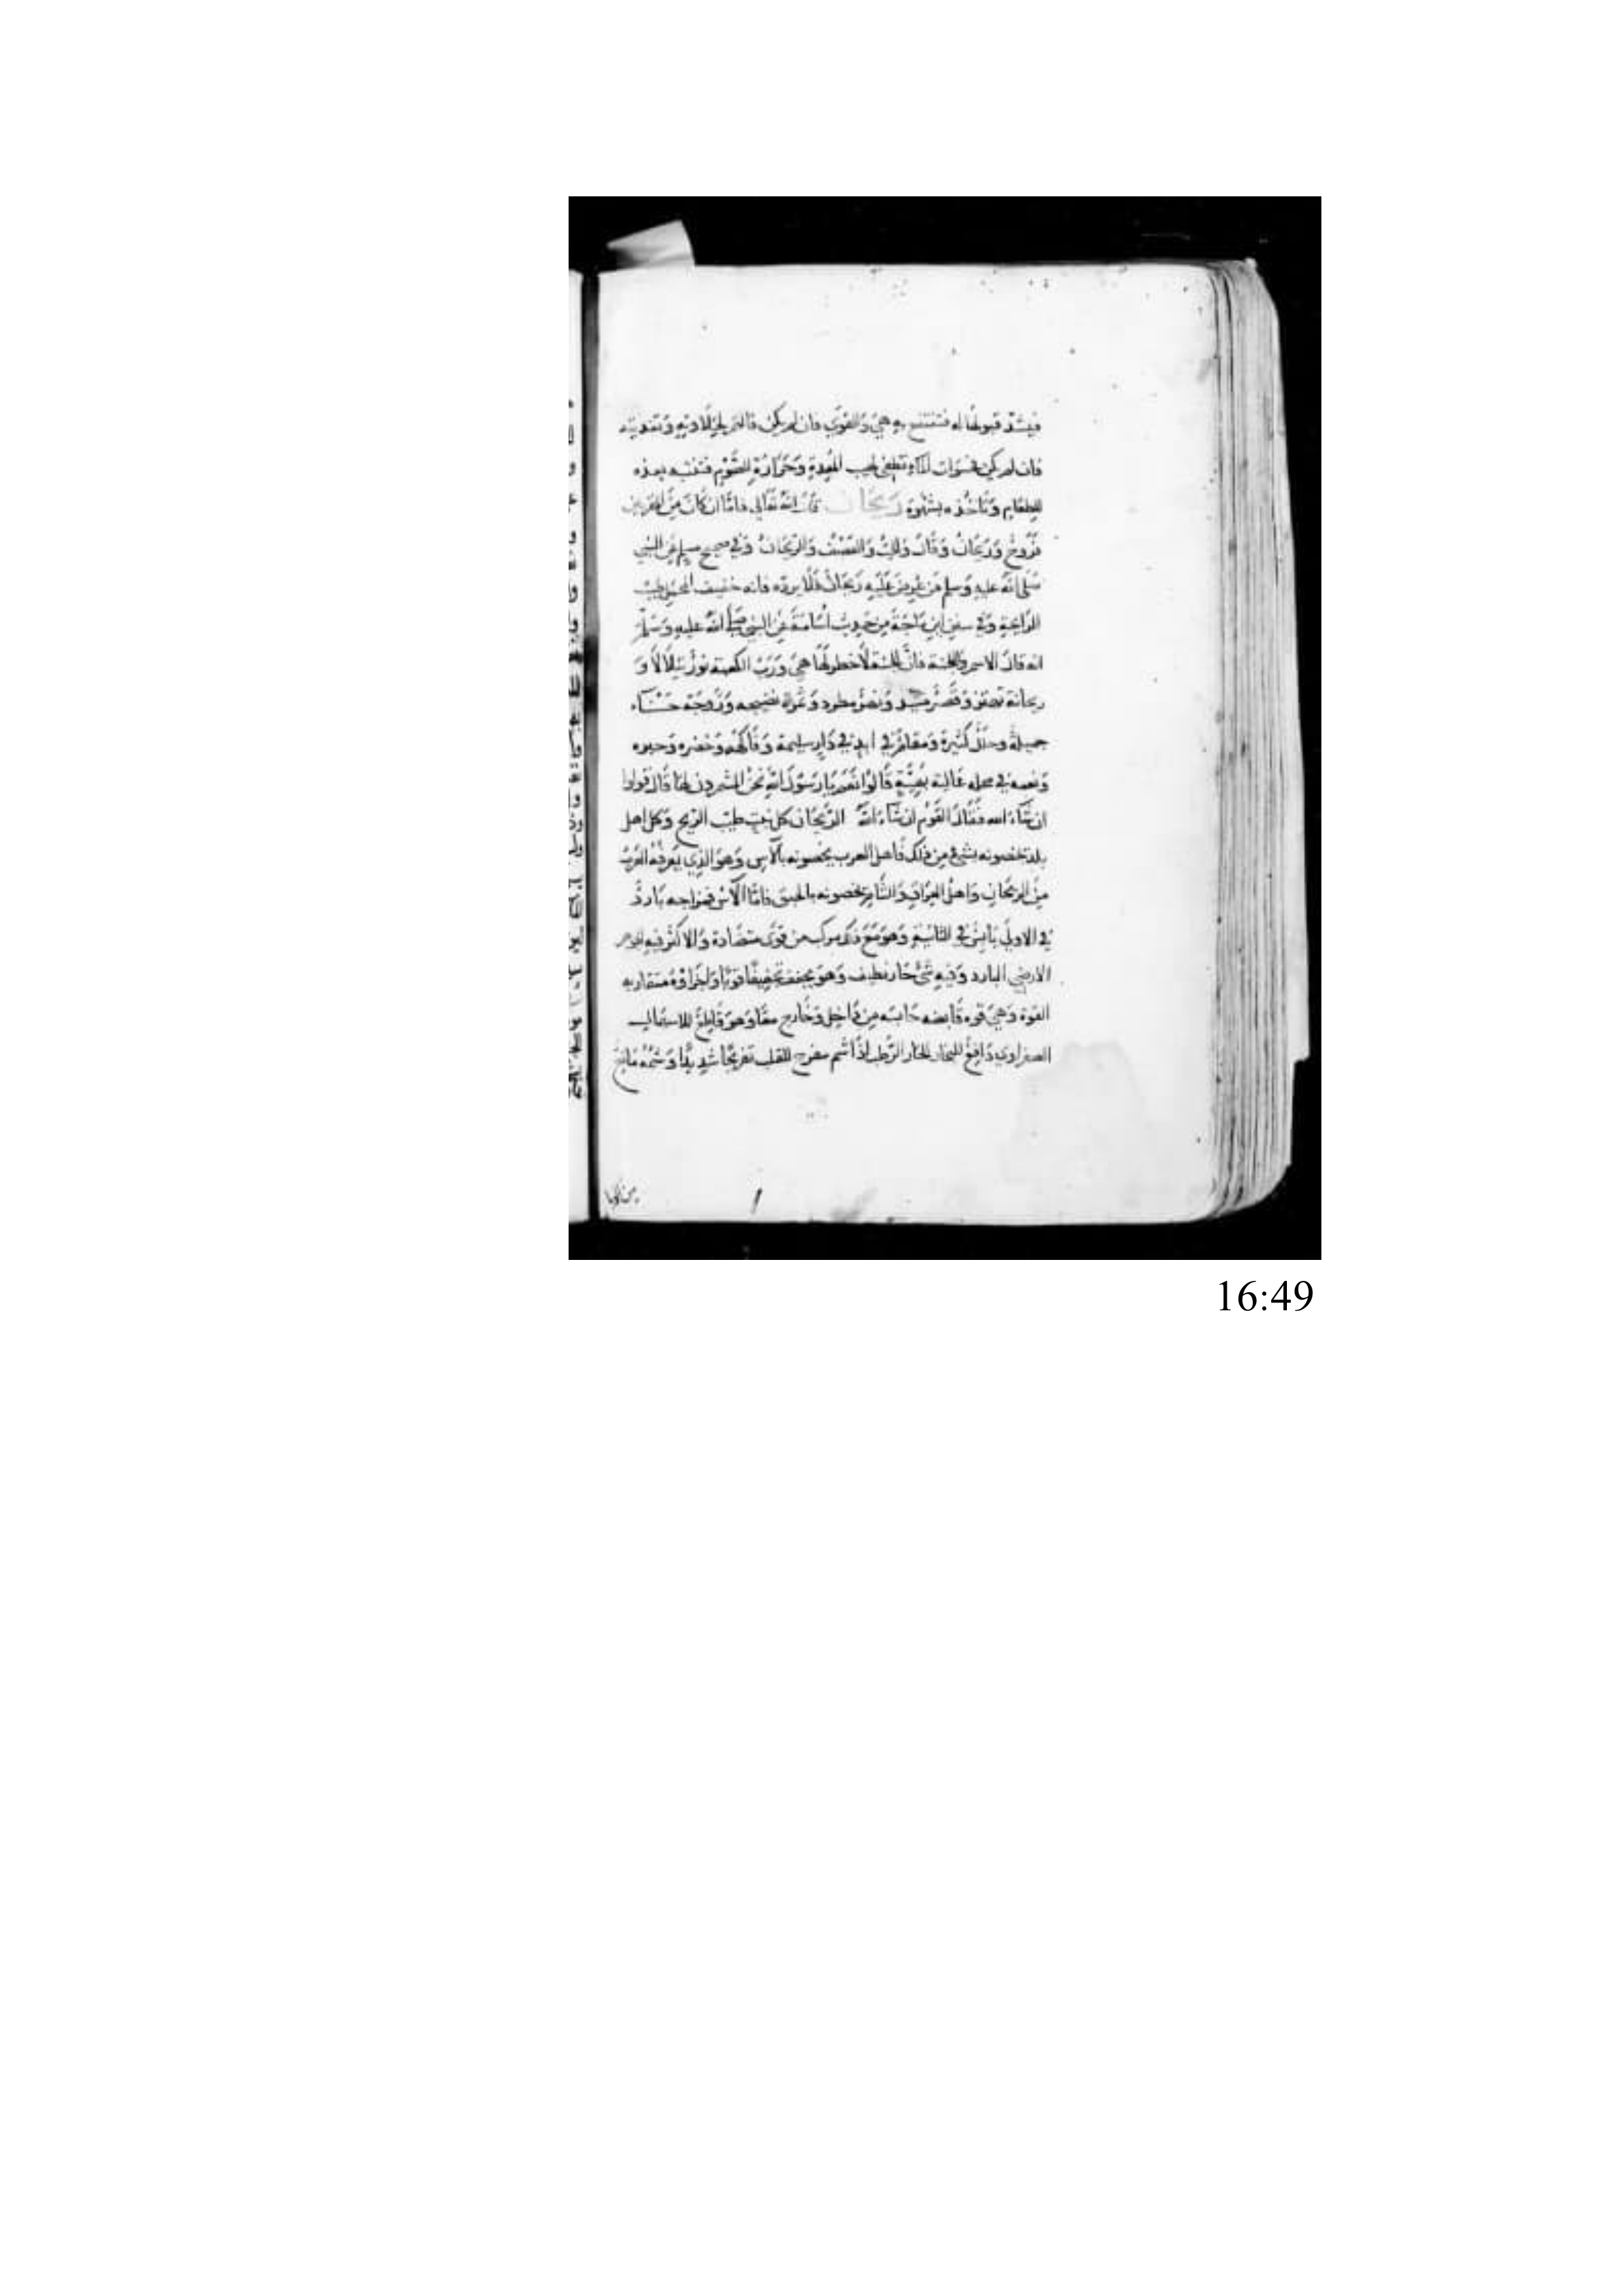 فيشتد قبولها له فتنتفع به هي والقوي فان لم يكن فالتمر لحلاوته وتغذيته
فان لم يكن فحسوات الماء تطفئ لهيب المعدة وحرارة الصوم فتنتبه بعده
للطعام وتاخذه بشهوة ريحان قال الله تعالي فاما ان كان من المقربين
فروح وريحان وقال والعصف والريحان وفي صحيح مسلم عن النبي
صلي الله عليه وسلم من عرض عليه ريحان فلا يرده فانه خفيف المحمل طيب
الرايحة وفي سنن ابن ماجة من حديث اسامة عن النبي صلى الله عليه وسلم
انه قال الا للجنة فان الجنة لا خطر لها هي ورب الكعبة نور يتلالا و
ريحانة تهتز وقصر مشيد ونهر مطرد وثمرة نضيجه وزوجة حسناء
جميلة وحلل كثيرة ومقام في ابد في دار سليمة وفاكهة وخضره وحبره
ونعمه في محله عالية بهية قالوا نعم يا رسول الله نحن المشمرون لها قال قولوا
ان شاء الله فقال القوم ان شاء الله الريحان كل نبت طيب الريح وكل اهل
بلد تخصونه بشئ من ذلك فاهل العرب يخصونه بالآس وهو الذي يعرفه العرب
من الريحان واهل العراق والشام تخصونه بالحبق فاما الآس فمزاجه بارد
في الاولي يابس في الثانية وهو مع ذلك مركب من قوي متضادة والاكثر فيه الجوهر
الارضي البارد وفيه شئ حار لطيف وهو يجفف تجفيفا قويا واجزاوه متقاربه
القوة وهي قوه قابضه حابسه من داخل وخارج معا وهو قاطع للاسهال
الصفراوي دافع للبخار الحار الرطب اذا شم مفرح للقلب تفريحا شديدا وشمه مانع
16:49